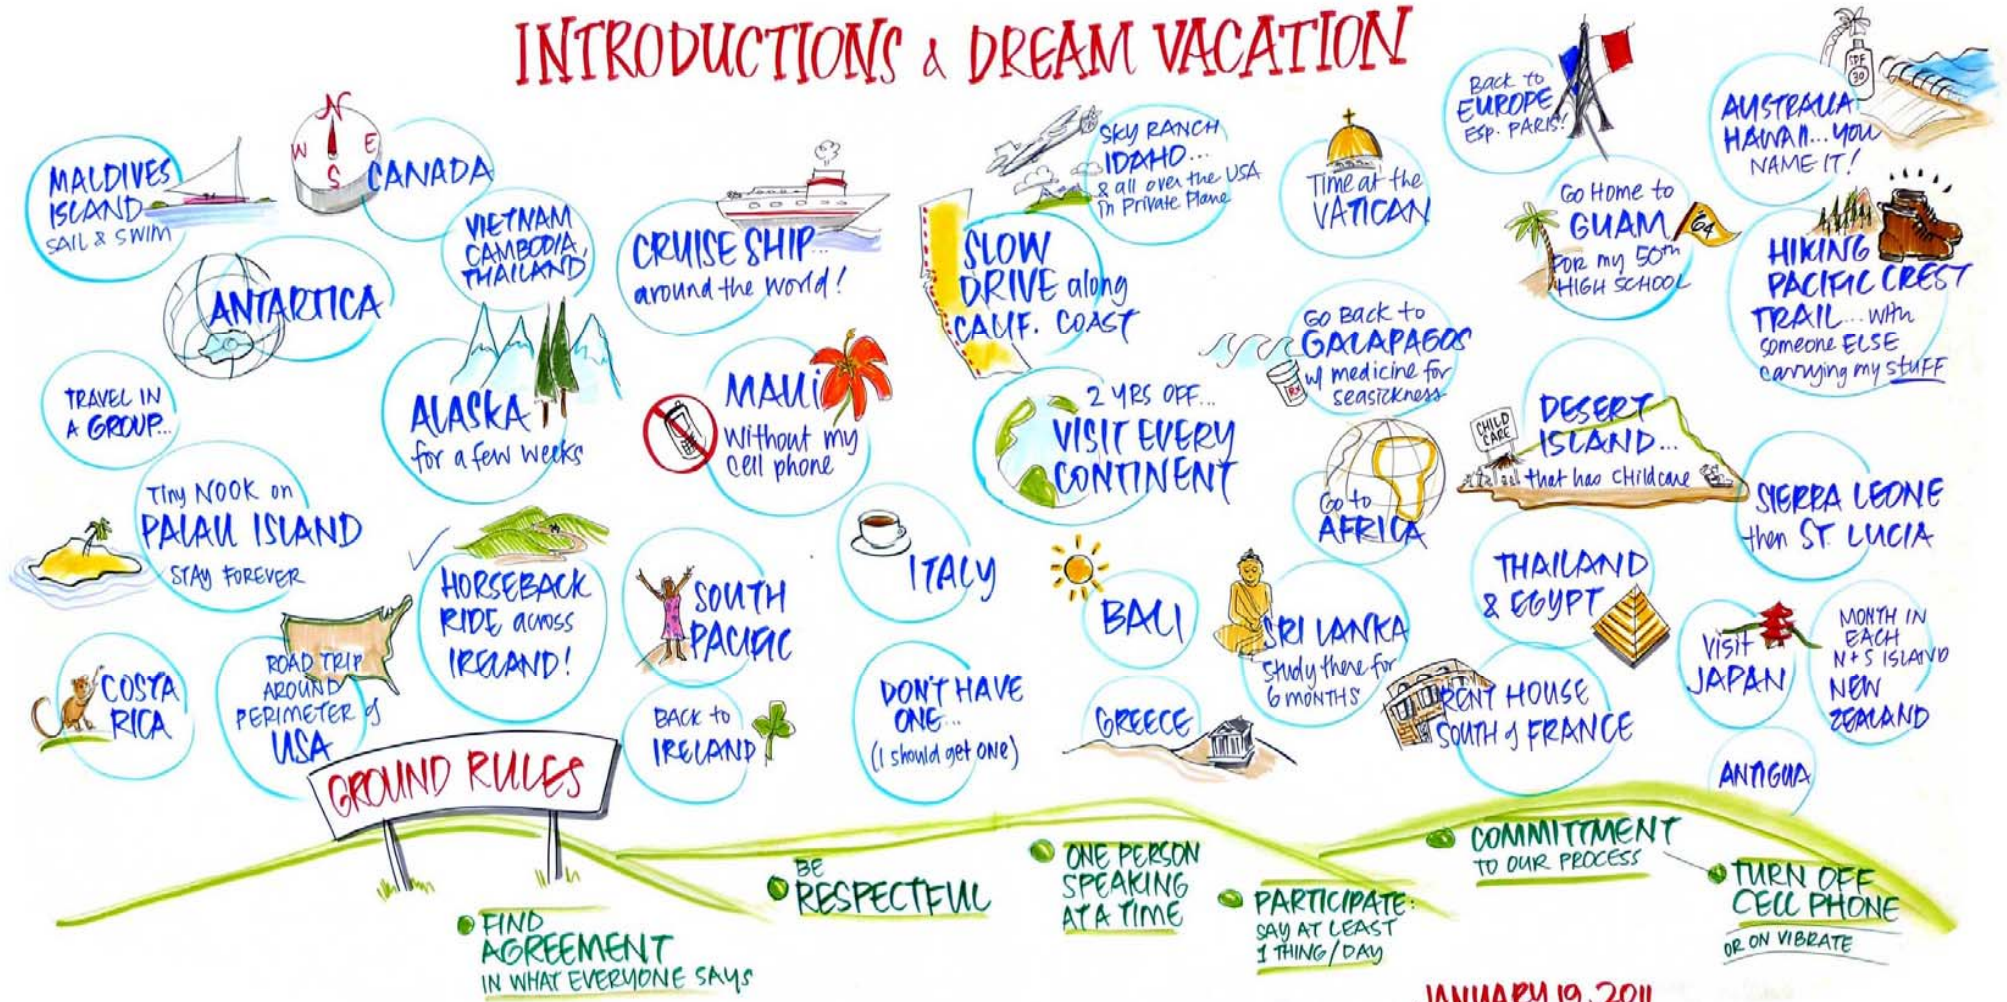 INTRODUCTIONS & DREAM VACATION
MALDIVES
ISLAND
SAIL & SWIM
N
W
E
S
CANADA
ANTARTICA
VIETNAM
CAMBODIA,
THAILAND
TRAVEL IN
A GROUP...
ALASKA
for a few weeks
Tiny NOOK on
PALAU ISLAND
STAY FOREVER
COSTA
RICA
ROAD TRIP
AROUND
PERIMETER of
USA
HORSEBACK
RIDE across
IRELAND!
CRUISE SHIP...
around the world!
MAUI
Without my
cell phone
SOUTH
PACIFIC
BACK to
IRELAND
ITALY
DON'T HAVE
ONE...
(I should get ONE)
SKY RANCH
IDAHO...
& all over the USA
in Private Plane
SLOW
DRIVE along
CALIF. COAST
2 YRS OFF...
VISIT EVERY
CONTINENT
BALI
GREECE
Time at the
VATICAN
GO BACK to
GALAPAGOS
w/ medicine for
seasickness
RX
Go to
AFRICA
SRI LANKA
Study there for
6 MONTHS
Back to
EUROPE
ESP. PARIS!
GO HOME to
GUAM
FOR my 50th
HIGH SCHOOL
'64
CHILD
CARE
DESERT
ISLAND...
that has CHILDcare
THAILAND
& EGYPT
RENT HOUSE
SOUTH of FRANCE
AUSTRALIA
HAWAII...YOU
NAME IT!
SPF
30
HIKING
PACIFIC CREST
TRAIL...with
someone ELSE
carrying my STUFF
SIERRA LEONE
then ST. LUCIA
Visit
JAPAN
MONTH IN
EACH
N+S ISLAND
NEW
ZEALAND
ANTIGUA
GROUND RULES
FIND
AGREEMENT
IN WHAT EVERYONE SAYS
BE
RESPECTFUL
ONE PERSON
SPEAKING
AT A TIME
PARTICIPATE:
SAY AT LEAST
1 THING/DAY
COMMITTMENT
TO OUR PROCESS
TURN OFF
CELL PHONE
OR ON VIBRATE
JANUARY 19, 2011